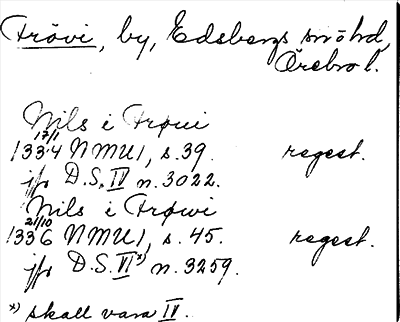 Frövi, by, Edsbergs sn o hd,
Örebro l.
Nils i Frøwi
17/1
1334 NMU1, s. 39. regest.
jfr D.S. IV n. 3022.
Nils i Frøwi
21/10
1336 NMU1, s. 45. regest.
jfr D.S. VI *) n. 3259.
*) skall vara IV.